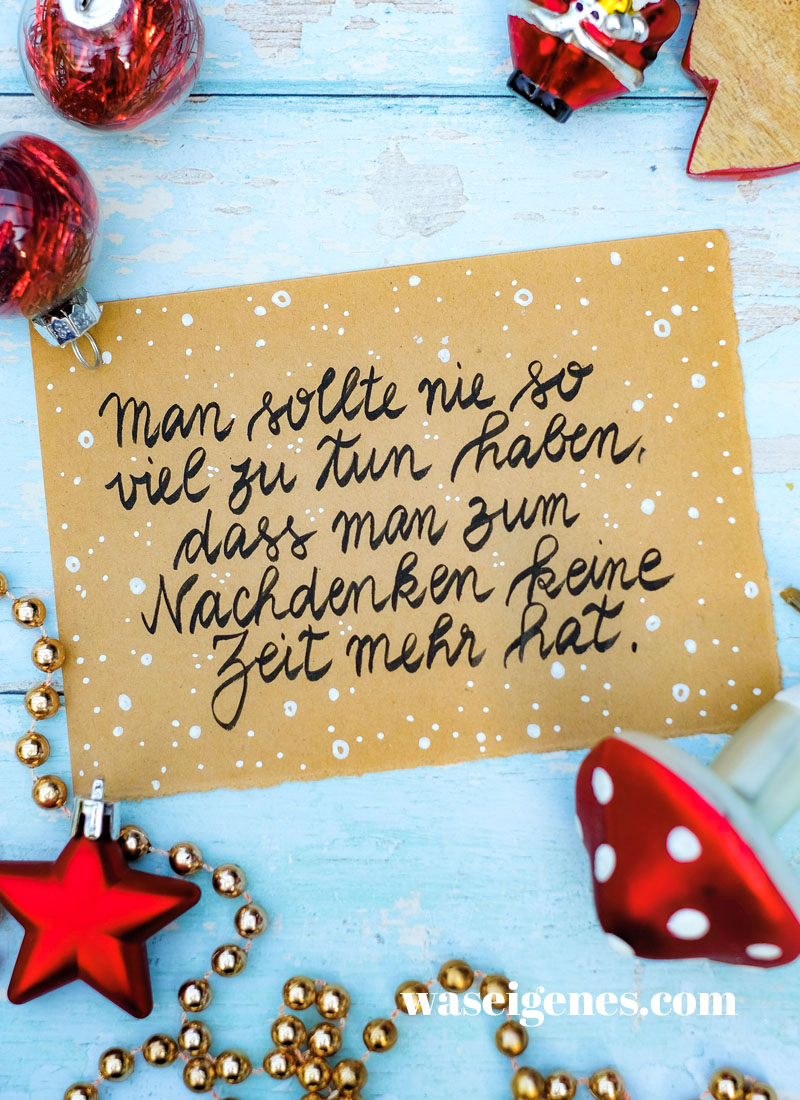 Man sollte nie so
viel zu tun haben,
dass man zum
Nachdenken keine
Zeit mehr hat.
waseigenes.com